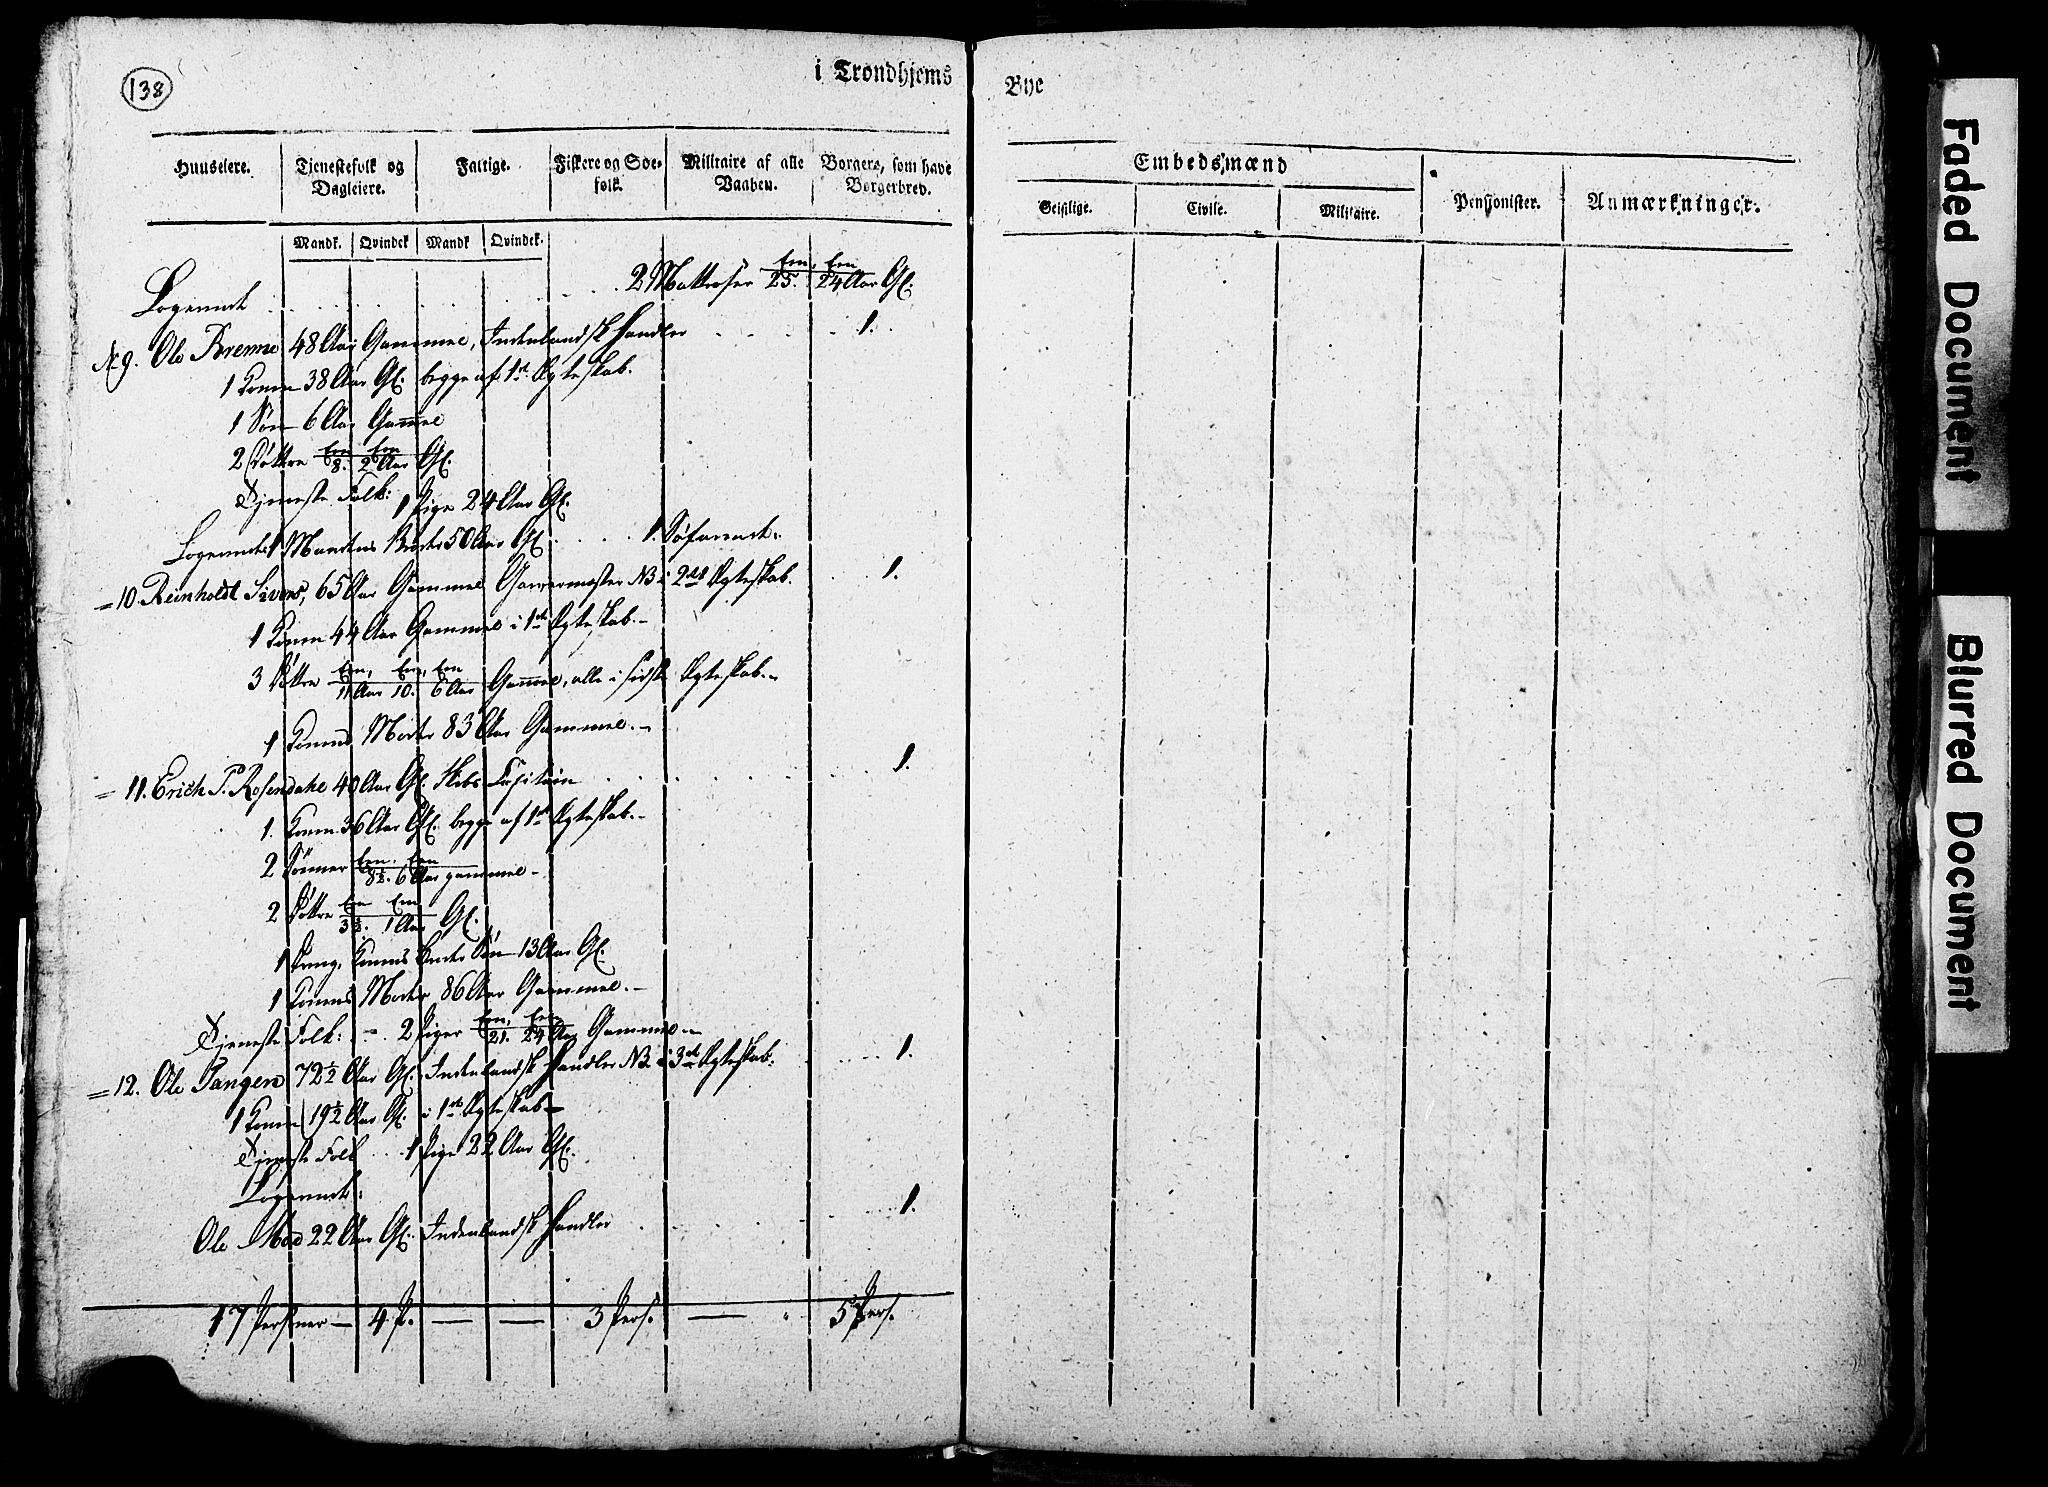 138
i Trondhjems
Bye
Huuseiere. Tjenestefolk og Dagleiere. Faltige. Fiskere og Søe-folk. Militaire af alle Vaaben. Borgere, som have Borgerbrev.
Mandk. Qvindek Mandk Qvindek.
Embedsmænd
Geistlige. Civile. Militaire. Pensionister. Anmærkninger.
Logerende . . . . 2 Mattroser Een 25. Een 24 Aar Gl.
No 9. Ole Brenne 48 Aar Gammel, Indenlandsk Handler . . . 1.
1 Konne 38 Aar Gl. begge af 1ste Ægteskab.
1 Søn 6 Aar Gammel
2 Døttre Een 8. Een 2 Aar Gl.
Tjeneste Folk: 1 Pige 24 Aar Gl.
Logerende 1 Mand 50 Aar Gl . . . 1. Søfarende.
= 10. Reinholdt Sivers, 65 Aar Gammel Garvermester NB i 2det Ægteskab. . . 1.
1 Konne 44 Aar Gammel i 1ste Ægteskab. –
3 Døttre Een, 11 Aar Een, 10. Een 6 Aar Gammel, alle i sidste Ægteskab. –
1 Konnens Moder 83 Aar Gammel. –
= 11. Erich P. Rosendahl 40 Aar Gl. Skibs Capitain . . . 1.
1. Konne 36 Aar Gl. begge af 1ste Ægteskab. –
2 Sønner Een, 8½. Een 6 Aar gammel –
2 Døttre Een 3½. Een 1 Aar Gl.
1 Dreng, Konens Søn 13 Aar Gl.
1 Konnens Moder 86 Aar Gammel. –
Tjeneste Folk: – 2 Piger Een, 21. Een 24 Aar Gammel –
= 12. Ole Tangen 72½ Aar Gl. Indenlandsk Handler NB i 3die Ægteskab. . . . 1.
1 Konne 19½ Aar Gl. i 1ste Ægteskab –
Tjeneste Folk . . . 1 Pige 22 Aar Gl.
Logerende:
Ole Moe 22 Aar Gl. Indenlandsk Handler . . . 1.
17 Personer – 4 P. – – 3 Pers. – " 5 Pers.
Faded Document
Blurred Document